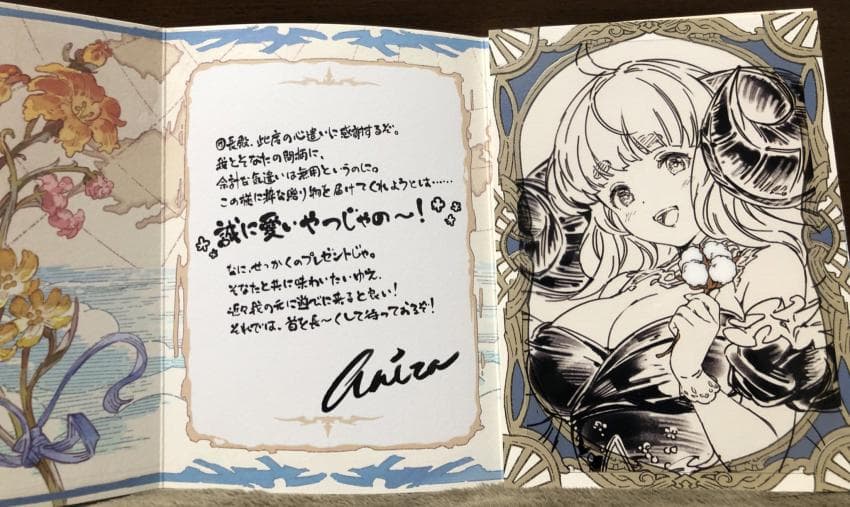 団長殿、此度の心遣いに感謝するぞ。
我とそなたの間柄に、
余計な気遣いは無用というのに。
この様に粋な贈り物を届けてくれようとは……
誠に愛いやつじゃの〜!
なに、せっかくのプレゼントじゃ。
そなたと共に味わいたいゆえ、
近々我の元に遊びに来ると良い!
それでは、首を長〜くして待っておるぞ!
Anira